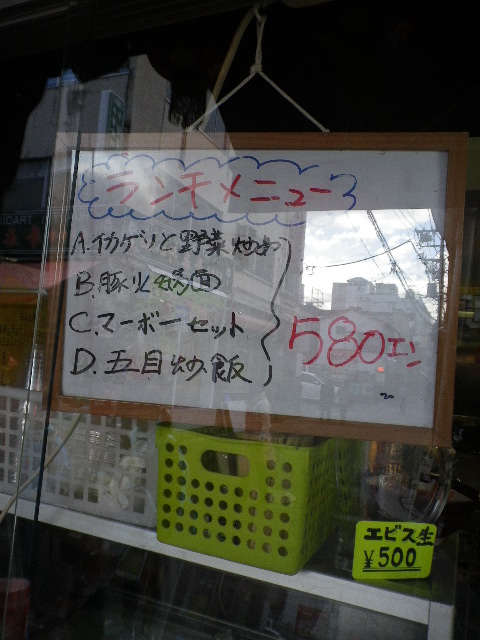 ランチメニュー
A.イカゲソと野菜炒め
B.豚火
C.マーボーセット
D.五目炒飯
580エン
エビス生
¥500